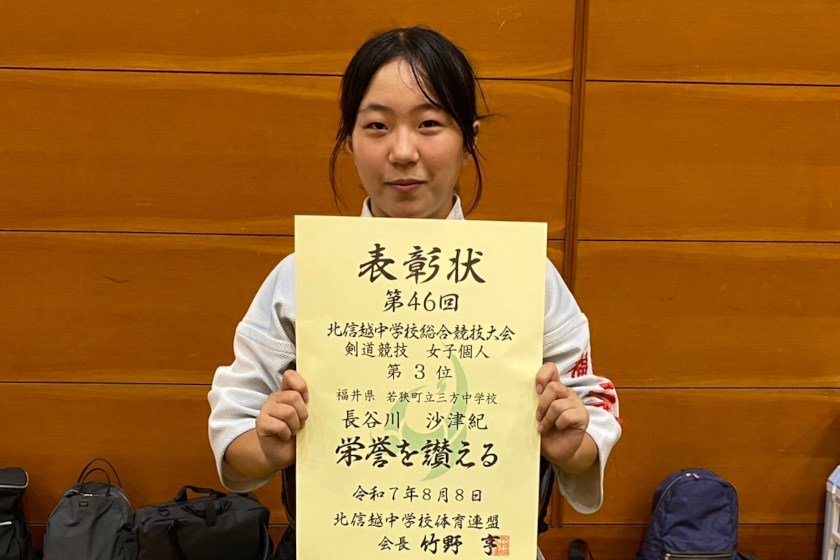 表彰状
第46回
北信越中学校総合競技大会
剣道競技 女子個人
第 3 位
福井県 若狭町立三方中学校
長谷川 沙津紀
栄誉を讃える
令和7年8月8日
北信越中学校体育連盟
会長 竹野 亨